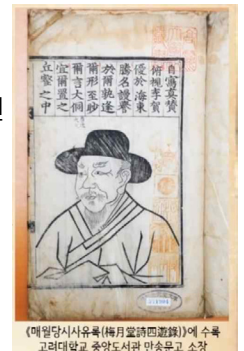 自寫眞贊
俯視李賀
優於海東
騰名謾譽
於爾孰逢
爾形至眇
爾言大侗
宜爾置之
丘壑之中
《매월당시사유록(梅月堂詩四遊錄)》에 수록
고려대학교 중앙도서관 만송문고 소장